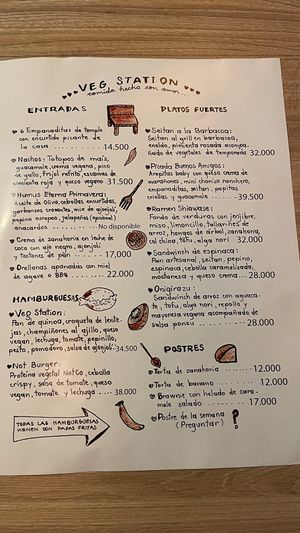 VEG STATION
comida hecha con amor
ENTRADAS
6 Empanaditas de templo
con encurtido picante de
la casa ........ 14.500
Nachos: Totopos de maís,
guacamole, crema vegana, pico
de gallo, frijol refrito, escamas de
pimienta roja y queso vegano 31.500
Humus Eterna Primavera:
Aceite de Oliva, cebollas encurtidas,
garbanzos cromados, mix de ajonjolí,
No disponible
Crema de zanahoria en leche
de coco con ajo negro, ajonjolí
y tostones de pan ...... 17,000
Orellanas apanadas con miel
de agave o BBQ ........ 22.000
HAMBURGUESAS
Veg Station:
Pan de quinoa, croqueta de lente-
jas, champiñones al ajillo, queso
vegan, lechuga, tomate, pepinillo,
pesto, pomodoro, salsa de ajonjolí 34.500
Not Burger:
Proteína vegetal NotCo, cebolla
crispy, salsa de tomate, queso
vegan, tomate y lechuga ... 38.000
TODAS LAS HAMBURGUESAS
VIENEN CON PAPAS FRITAS
PLATOS FUERTES
Seitan a la Barbacoa:
Seitan al grill en barbacoa,
eneldo, pimienta rosada acompa-
ñado de vegetales de temporada 32.000
Picada Buenos Amigos:
Arepitas baby con queso crema de
marañones, mini chorizo ranchero,
empanaditas, seitan, papitas
criollas y guacamole ...... 39.500
Ramen Shiawase:
Fondo de verduras con jenjibre,
miso, limoncillo, tallarines de
arroz, hongos de arroz, zanahoria,
col china, tofu, alga nori 32.000
Sandwich de espinaca:
Pan artesanal, seitan, pepino,
espinaca, cebolla caramelizada,
mostaneza y queso crema .... 28.000
Onigirazu:
Sandwich de arroz con aguaca-
te, tofu, alga nori, repollo y
mayonesa vegana acompañado de
salsa ponzu ............ 28.000
POSTRES
Torta de zanahoria ..... 12.000
Torta de banano ....... 12.000
Brownie con helado de cara-
melo salado ........ 17.000
Postre de la semana
(Preguntar) ?